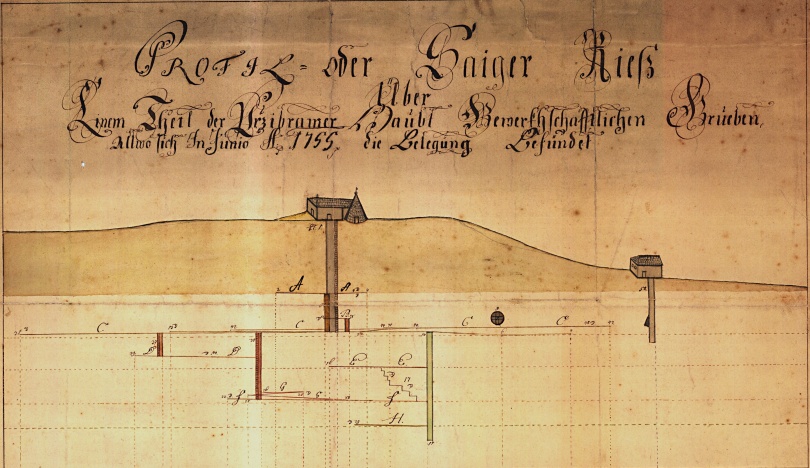 Profil- oder Saiger Rieß
Über
Einem Theil der Przibramer Haubt Gewerkhschafftlichen Grueben,
Allwo sich In Junio A. 1755. die Belegung Befündet
A A
B
C n n C n n C C n
D D
E E
G G
F F
H